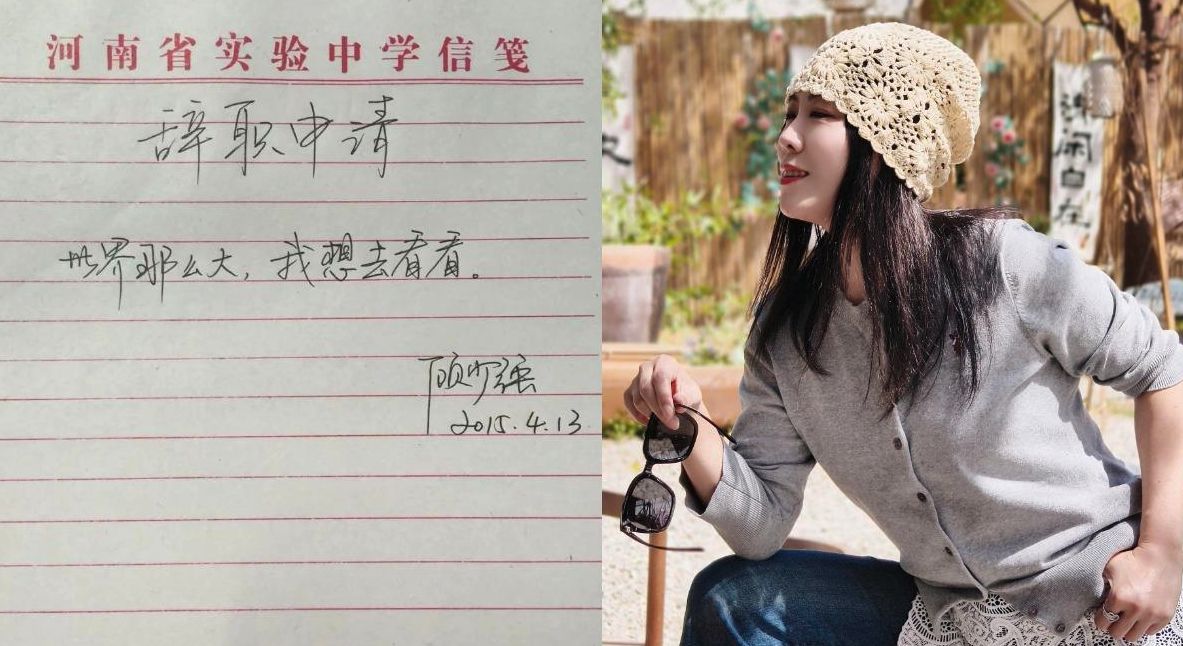 河南省实验中学信笺
辞职申请
世界那么大，我想去看看。
顾少强
2015.4.13
闲自在